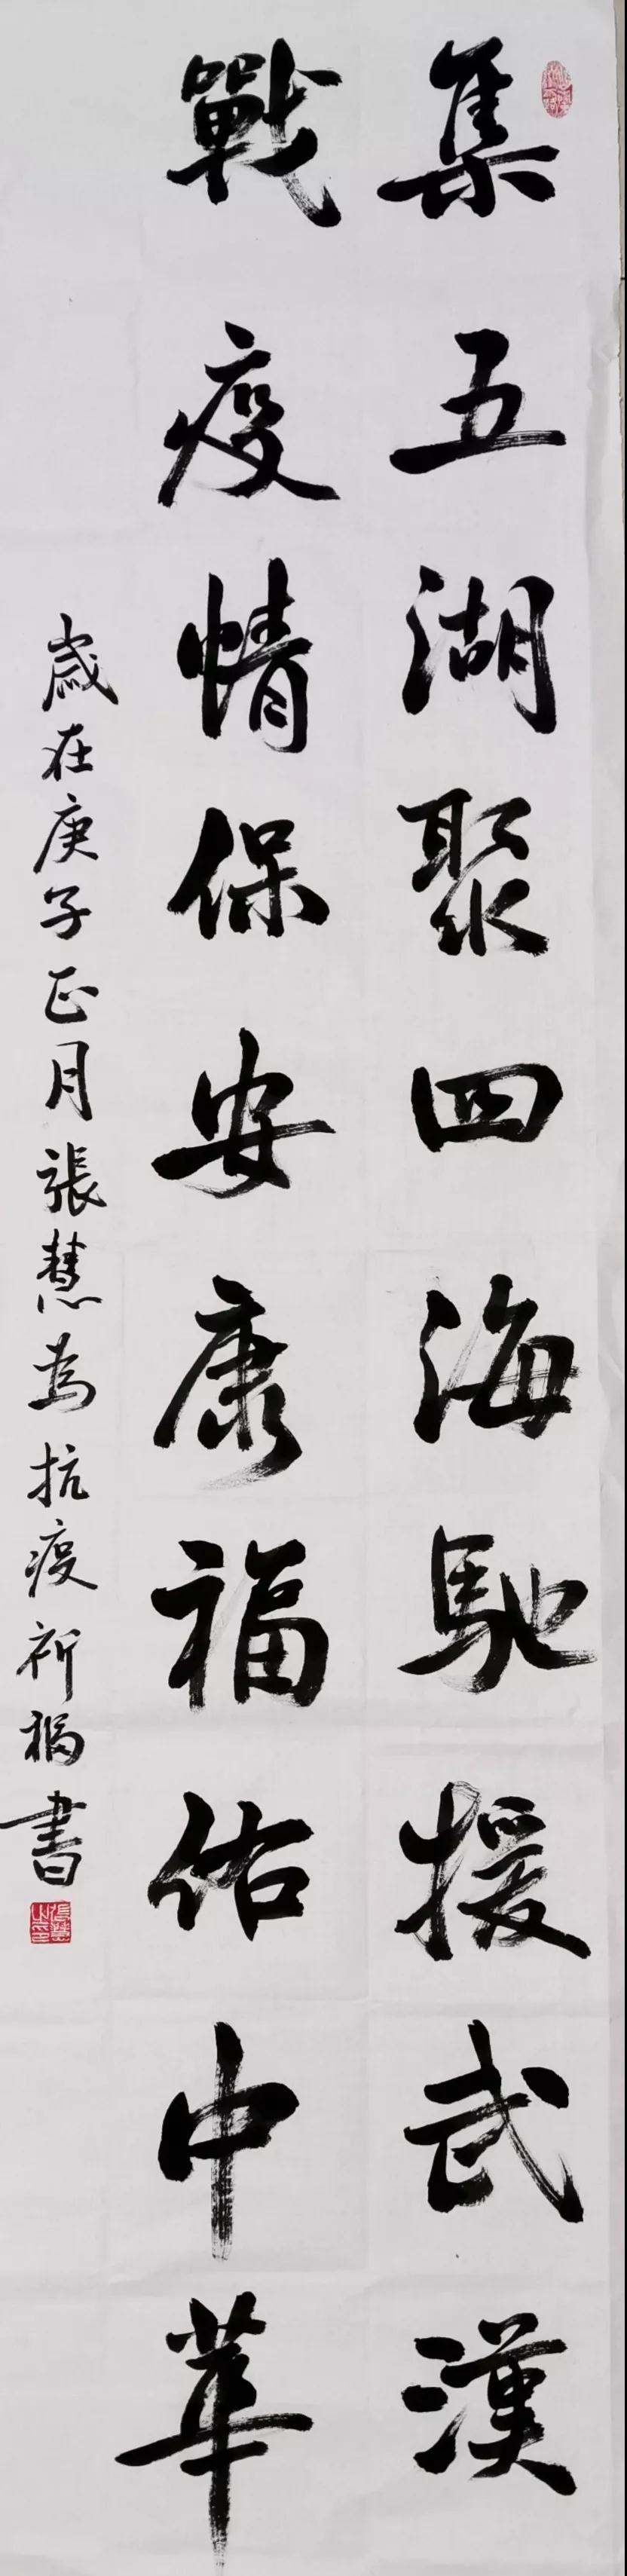 集五湖聚四海馳援武漢
戰疫情保安康福佑中華
歲在庚子正月張慧為抗疫祈福書